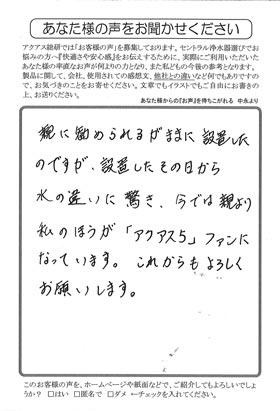 あなた様の声をお聞かせください
アクアス総研では「お客様の声」を募集しております。セントラル浄水器選びでお
悩みの方へ『快適さや安心感』をお伝えするために、実際にご利用いただいた
あなた様の率直なお声が何よりの力となり、また私ども今後の励みになります。
製品に関して、会社、使用されての感想文、他社との違いなど何でもありですの
で、お気づきのことをお寄せください。文章でもイラストでもご自由にお書きの
上、お送りください。
あなた様からの『お声』を待ちこがれる 中永より
親に勧められるがままに設置した
のですが、設置したその日から
水の違いに驚き、今では親より
私のほうが「アクアス5」ファンに
なっています。これからもよろしく
お願いします。
このお客様の声を、ホームページや紙面などで、ご紹介してもよろしいでしょ
うか？ □はい □匿名で □ダメ ←チェックを入れてください。